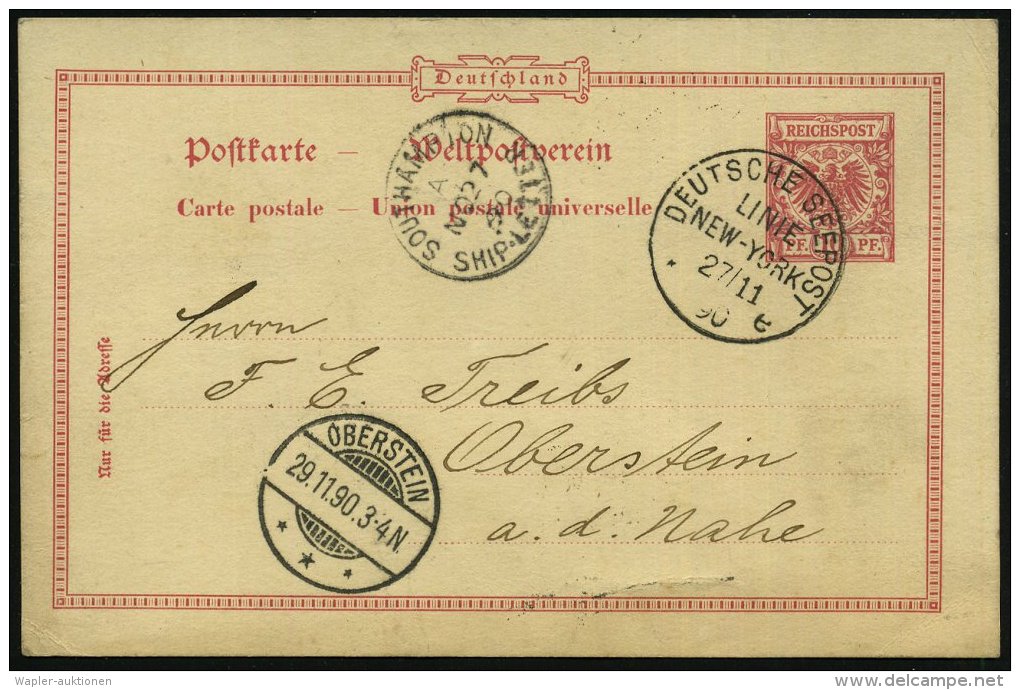 Deutschland
Postkarte — Weltpostverein
Carte postale — Union postale universelle
REICHSPOST
PF. PF.
SOUTHAMPTON SHIP-LETTER
A
NO 27
90
DEUTSCHE SEEPOST
LINIE
NEW-YORK
27/11
90 e
Herrn
F. E. Treibs
Oberstein
a. d. Nahe
Nur für die Adresse
OBERSTEIN
29.11.90.3-4N.
Wapler-auktionen
delcampe.net